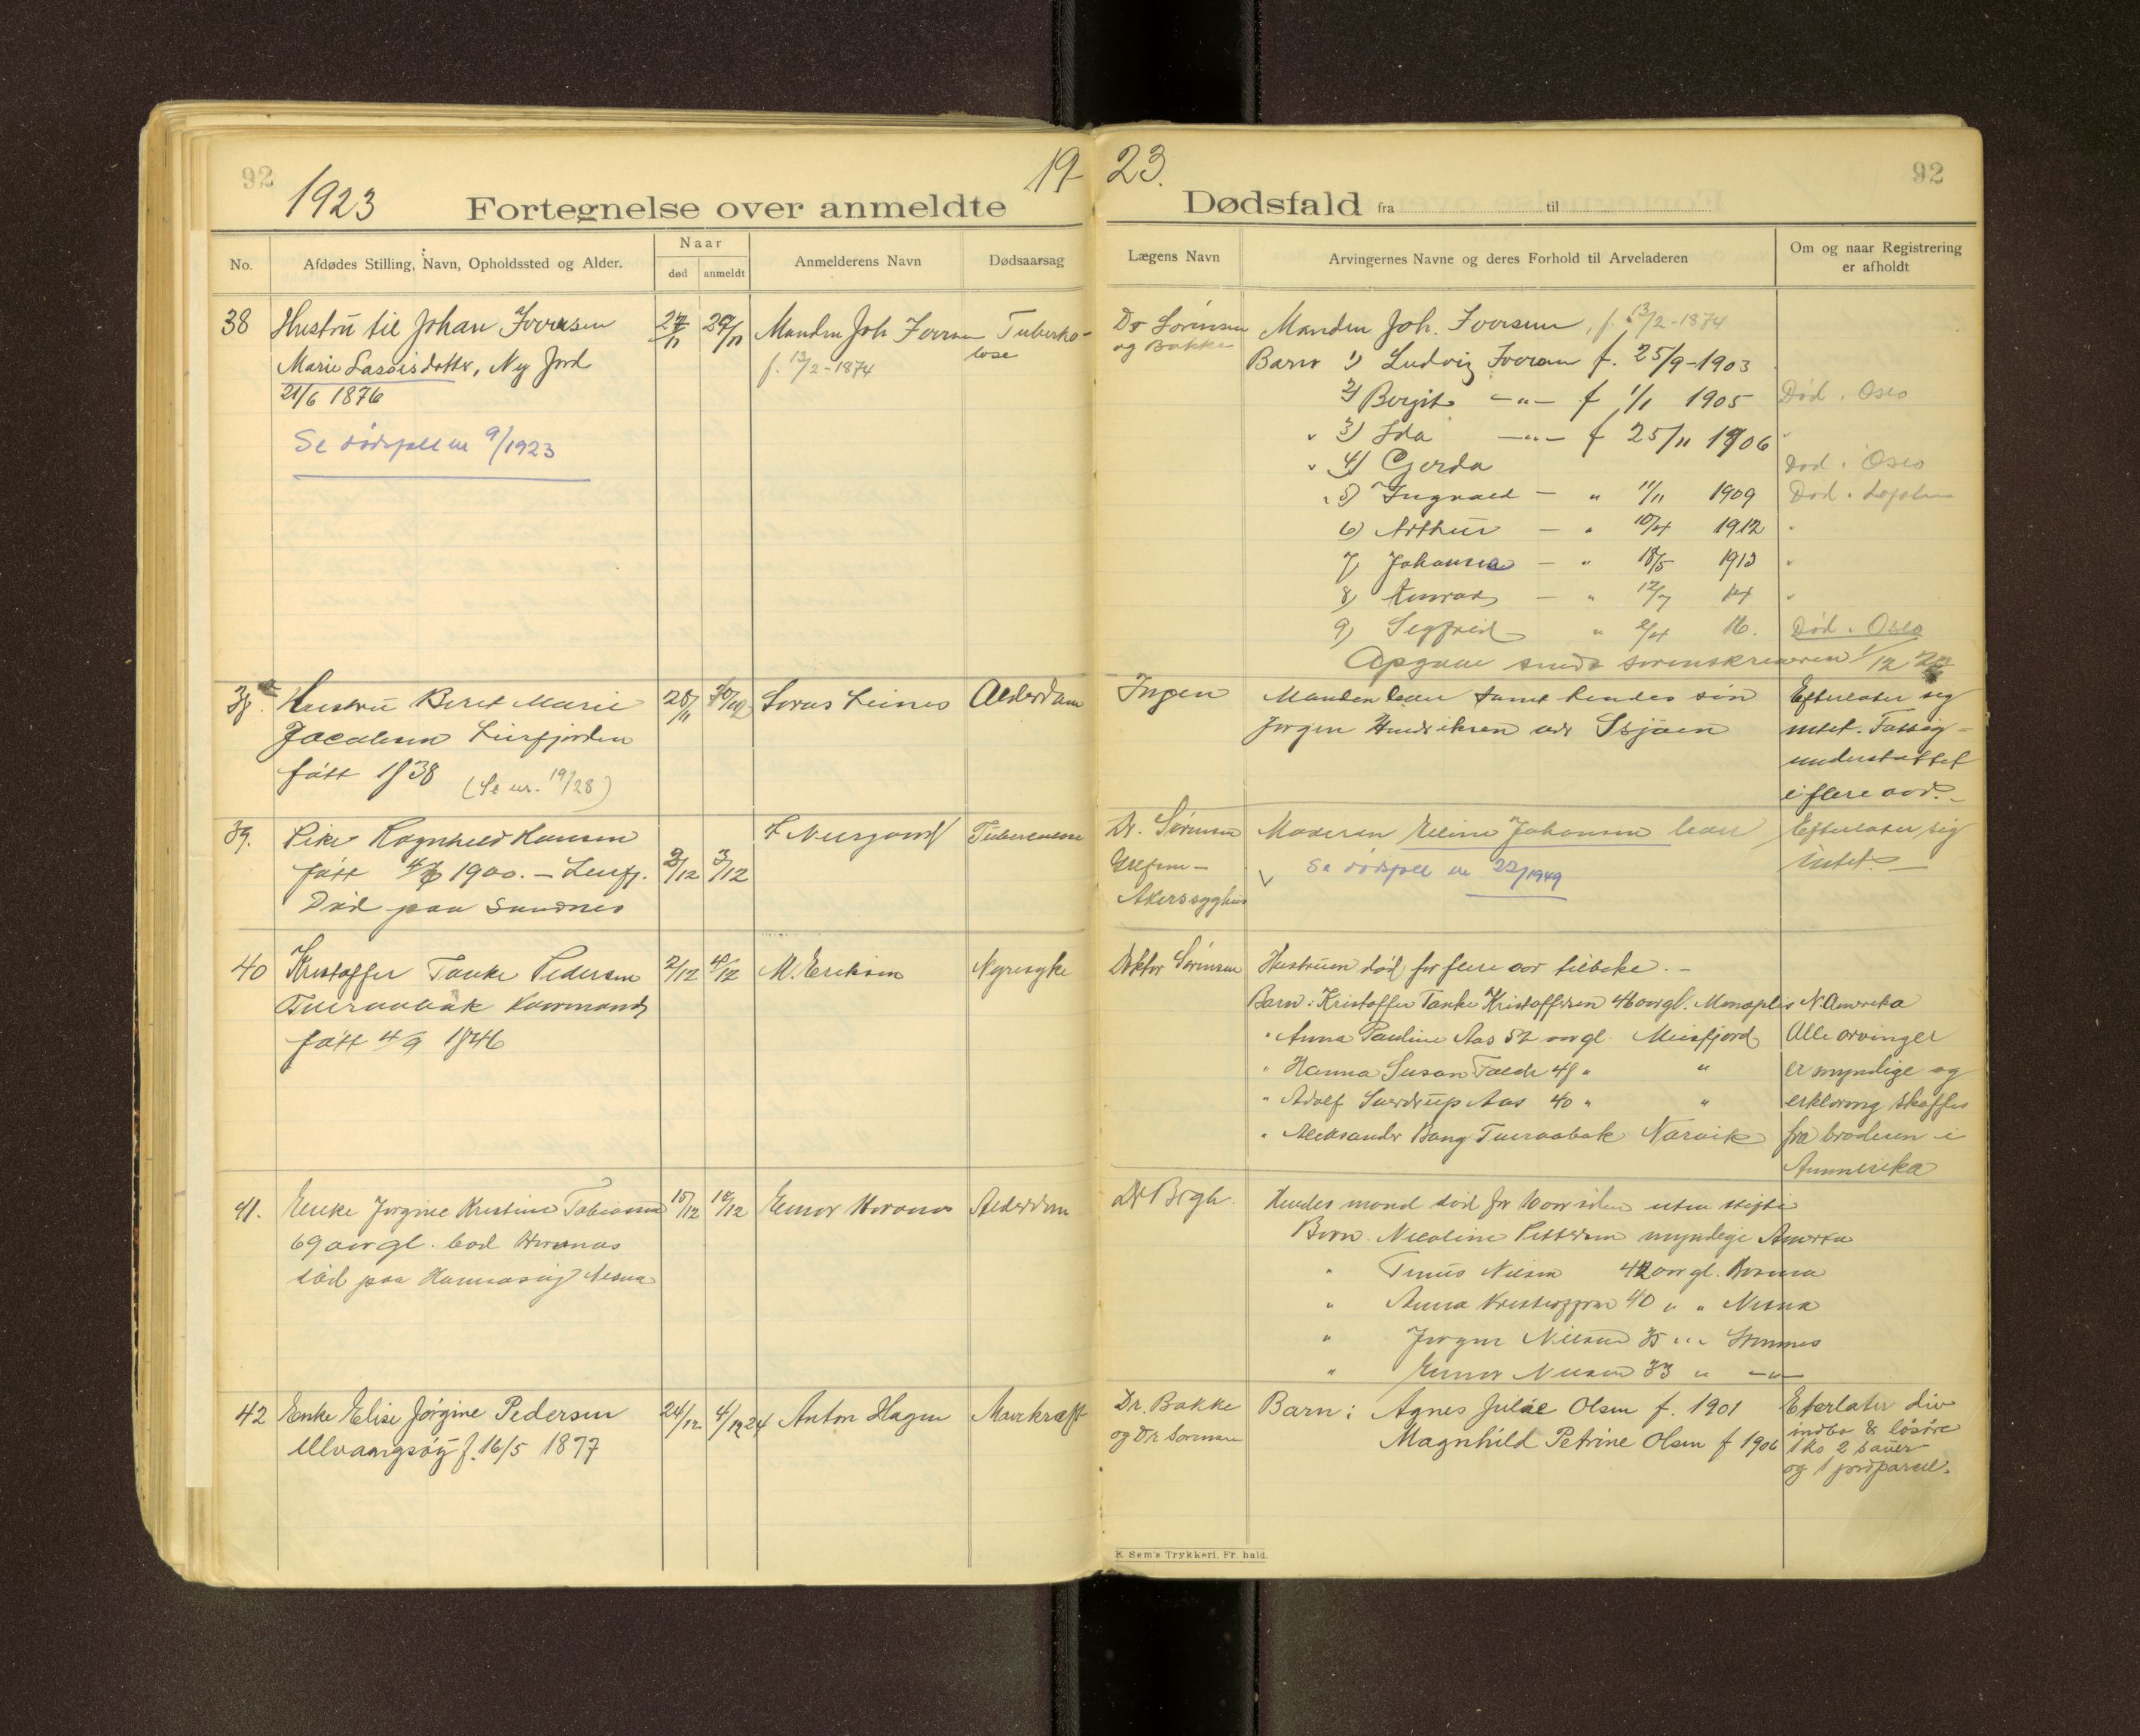 92
1923
19
Fortegnelse over anmeldte
No.
Afdødes Stilling, Navn, Opholdssted og Alder.
Naar
død
anmeldt
Anmelderens Navn
Dødsaarsag
23.
92
Dødsfald fra til
Lægens Navn
Arvingernes Navne og deres Forhold til Arveladeren
Om og naar Registrering
er afholdt
38
Hustru til Johan Iversen
Marie Lassesdotter, Ny Jord
21/6 1876
Se dødsfall nr 9/1923
29/11
Manden Joh Iversen
f. 13/2-1874
Tuberku-
lose
Dr Sørensen
og Bakke
Manden Joh. Iversen, f. 13/2-1874
Barn 1) Ludvig Iversen f. 25/9-1903
2) Bergit -"- f 1/1 1905 Død i Oslo
3) Ida -"- f 25/11 1906 "
4) Gerda Død i Oslo
5) Ingvald - " 11/11 1909 Død i
6) Arthur - " 10/4 1912 "
7) Johanna - " 18/5 1913 "
8) Konrad - " 12/7 14 "
9) Sigfred " 2/4 16. Død i Oslo
Opgave sendt sorenskriveren 1/12
Hustru Beret Marie
Jacobsen Leirfjorden
født 1838 (Se nr. 19/28)
28/11
Leines
Alderdom
Ingen
Manden lever samt hendes søn
Jørgen Hendriksen
Efterlater sig
intet. Fattig-
understøttet
i flere aar.-
39.
Pike Ragnhild Hansen
født 1900. - Leirfj.
Død paa Sundnes
3/12
3/12
Tuberculose
Dr. Sørensen
Grefsen-
Akers sygehus
Moderen Eline Johansen lever
Se dødsfall nr 22/1949
Efterlater sig
intet.-
40
Kristoffer Tanke Pedersen
Tveraabak Kaarmand
født 4/9 1846
2/12
4/12
M. Eriksen
Nyresyke
Doktor Sørensen
Hustruen død for flere aar tilbake.-
Barn: Kristoffer Tanke Kristoffersen 46 aar gl. N. Amerika
" Anna Pauline Aas 52 aar gl. Meisfjord
" Hanna Susan 48 " "
" Adolf Sverdrup Aas 40 " "
" Aleksander Bang Tveraabak Narvik
Alle arvinger
er myndige og
erklæring skaffes
fra broderen i
Ammerika
41.
Enke Jørgine Kristine Tobiassen
69 aar gl.
død paa Nesna
15/12
18/12
Alderdom
Dr Bergh.
Hendes mand død for 10 aar siden uten skifte
Born. Nicoline Pettersen myndige Amerka
" Nilsen 42 aar gl.
" Anna Kristoffersen 40 " " Nesna
" Jørgen Nilsen 35 " "
" Nilsen 33 " -"-
42
Enke Elise Jørgine Pedersen
Ulvangsøy f. 16/5 1877
24/12
4/1 1924
Anton Hagen
Mavekræft
Dr. Bakke
og Dr Sørensen
Barn: Agnes Julie Olsen f. 1901
Magnhild Petrine Olsen f 1906
Efterlater div
indbo & løsøre
1 ko 2 sauer
og 1 jordparsel.
E Sem's Trykkeri, Fr. hald.